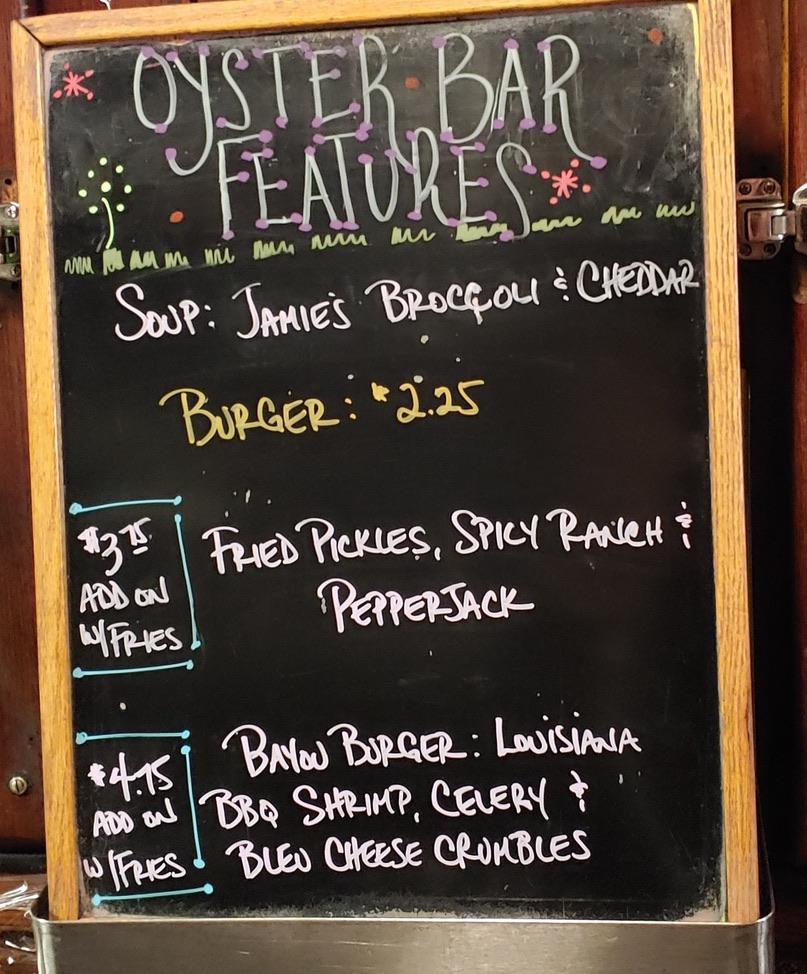 OYSTER BAR
FEATURES
SOUP: JAMIE'S BROCCOLI & CHEDDAR
BURGER: $2.25
$3.75
ADD ON
W/FRIES
FRIED PICKLES, SPICY RANCH &
PEPPERJACK
$4.75
ADD ON
W/FRIES
BAYOU BURGER: LOUISIANA
BBQ SHRIMP, CELERY &
BLEU CHEESE CRUMBLES